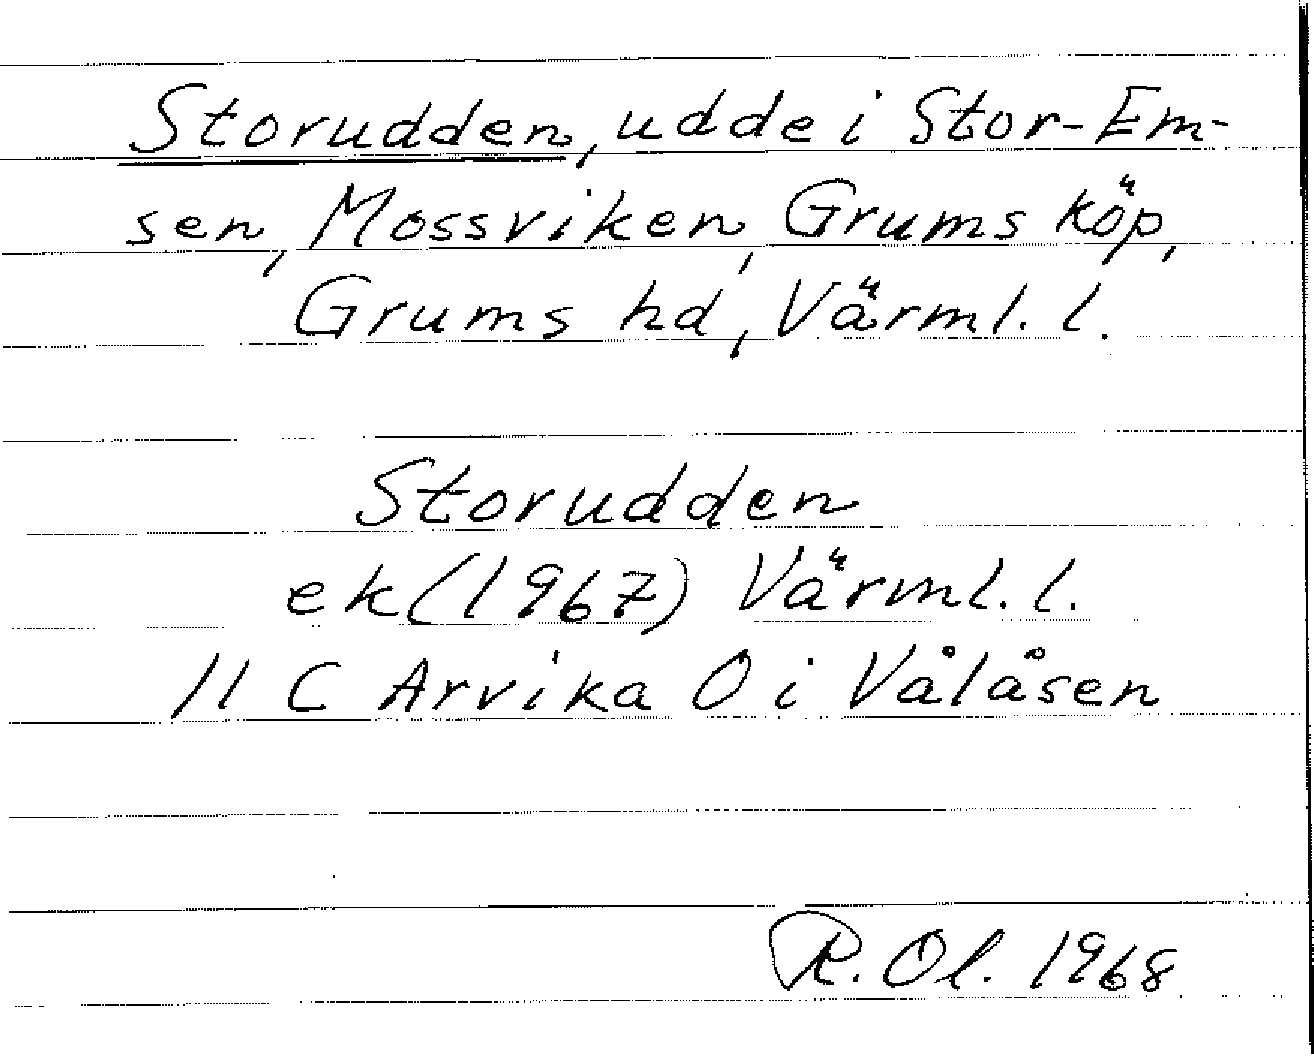 Storudden, udde i Stor-Em-
sen, Mossviken, Grums köp,
Grums hd, Värml. l.
Storudden
ek (1967) Värml. l.
11 C Arvika O i Vålåsen
R. Ol. 1968